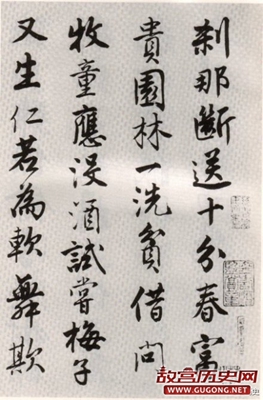 刹那斷送十分春富
貴園林一洗貧借問
牧童應没酒試嘗梅子
又生仁若為軟舞欺
故宫历史网
www.GUGONG.net